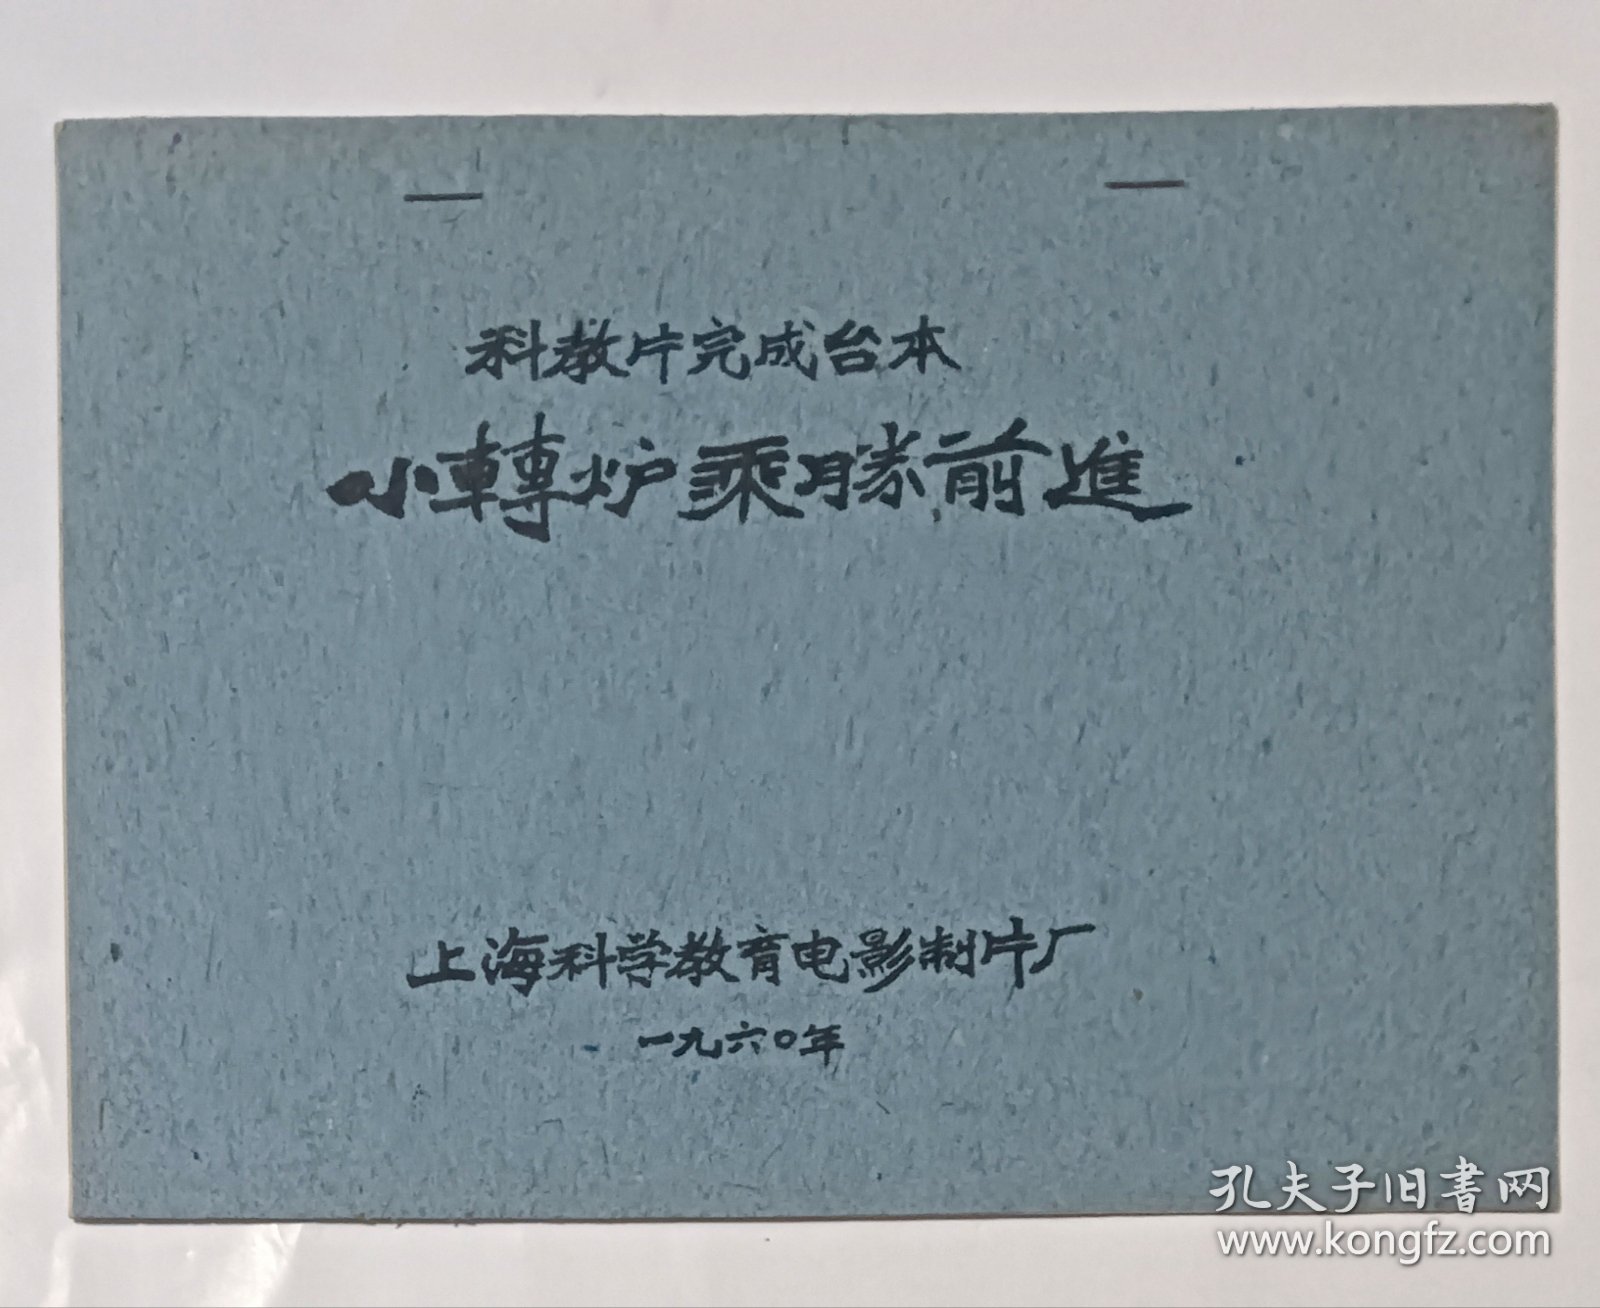 科教片完成台本
小轉炉乘勝前進
上海科学教育电影制片厂
一九六〇年
孔夫子旧書网
www.kongfz.com